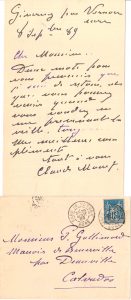 Giverny par Vernon
Eure
8 Sept 89
Cher Monsieur,
Deux mots pour
vous prévenir que
je suis de retour et
que vous pouvez
venir quand
vous voudrez en
me prévenant la
veille.
Mes meilleurs com
pliments
tout à vous
Claude Monet
Monsieur P. Gallimard
Manoir de Benerville
par Deauville
Calvados